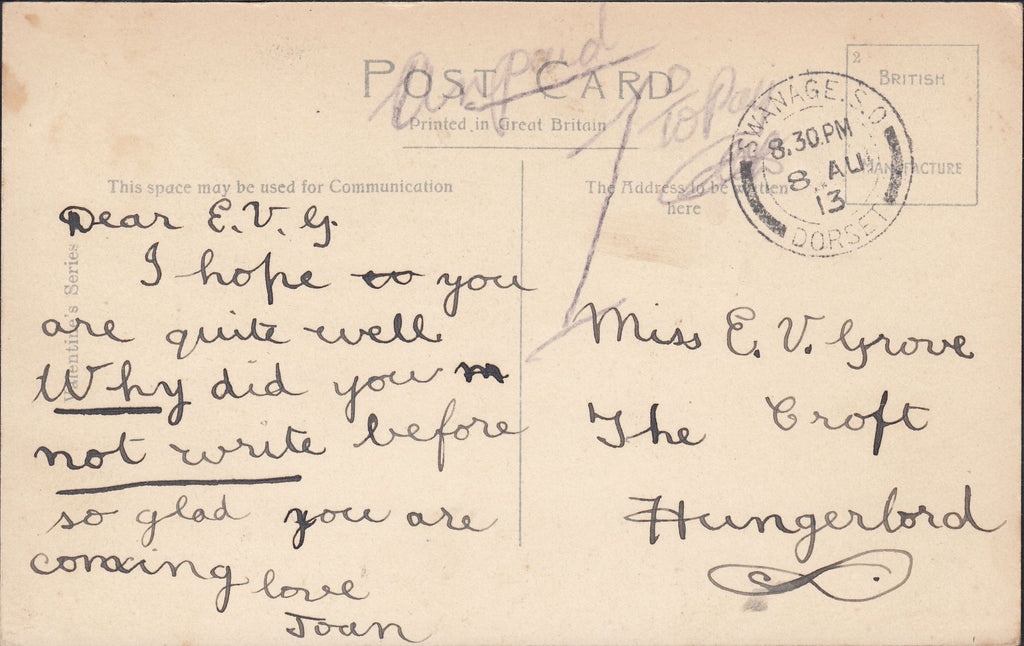 POST CARD
Printed in Great Britain
Unpaid
To Pay
2
BRITISH
MANUFACTURE
SWANAGE. S.O
8.30.PM
8 AU
13
DORSET
This space may be used for Communication
The Address to be written
here
Valentine's Series
Dear E. V. G.
I hope so you
are quite well
Why did you m
not write before
so glad you are
coming
love
Joan
Miss E. V. Grove
The Croft
Hungerbord